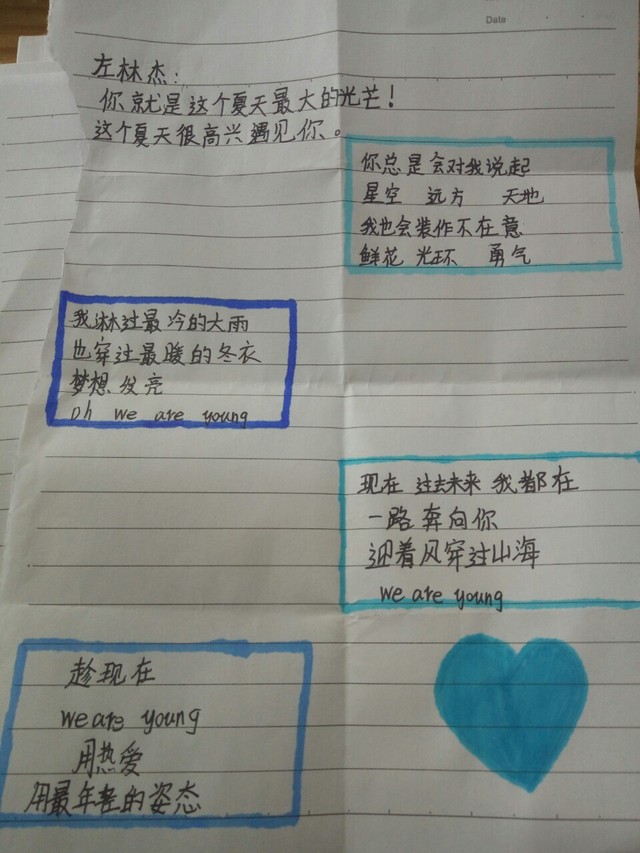 Date
左林杰:
你就是这个夏天最大的光芒!
这个夏天很高兴遇见你。
你总是会对我说起
星空 远方 天地
我也会装作不在意
鲜花 光环 勇气
我淋过最冷的大雨
也穿过最暖的冬衣
梦想发亮
Oh we are young
现在 过去未来 我都在
一路奔向你
迎着风穿过山海
we are young
趁现在
we are young
用热爱
用最年轻的姿态